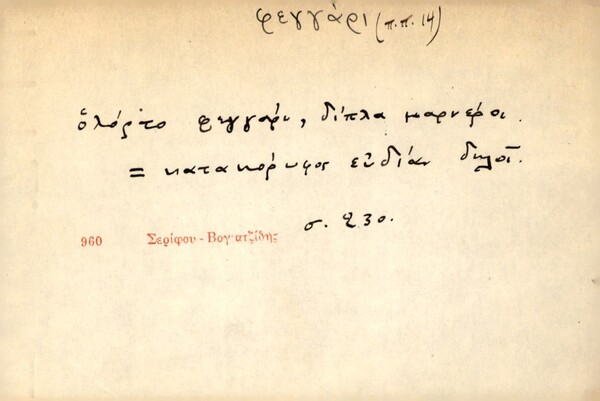 φεγγάρι (π.π. 14)
ὁλόρτο φεγγάρι, δίπλα μαρνέροι.
= κατακόρυφος εὐδίαν δηλοῖ.
σ. 230.
960 Σερίφου - Βογιατζίδης